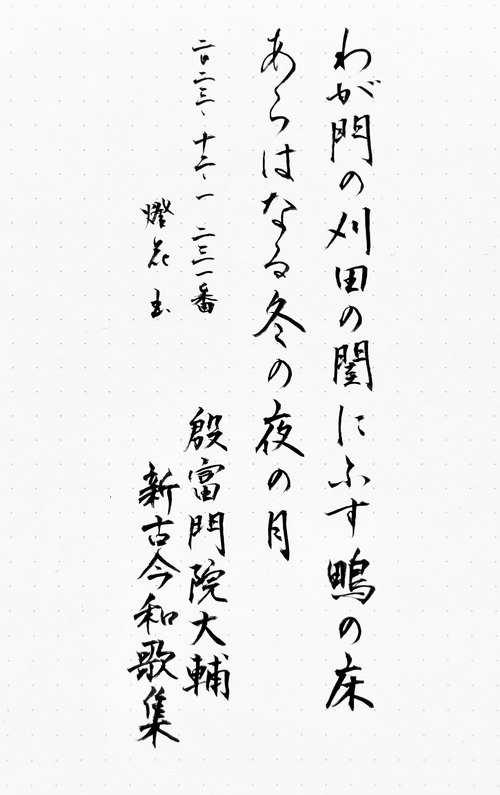 わが門の刈田の閨にふす鴫の床
あらはなる冬の夜の月
二〇二三、十二、一 二三一番
殷富門院大輔
新古今和歌集
燈花